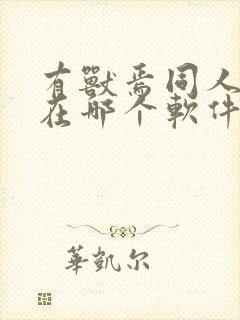 有獸焉同人
在哪个軟件
華凱尔